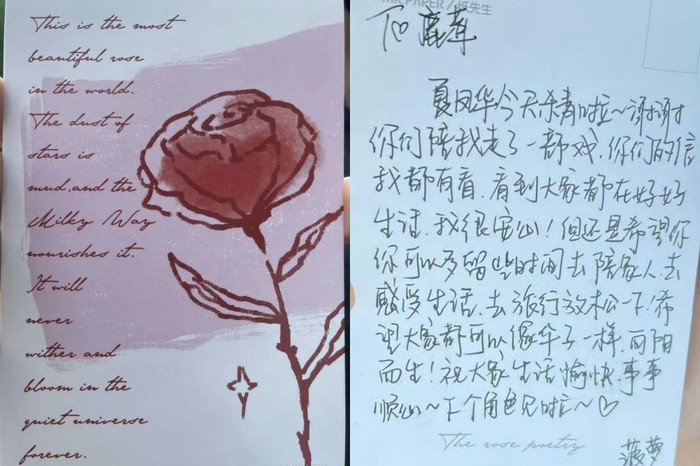 This is the most
beautiful rose
in the world.
The dust of
stars is
mud,and the
Milky Way
nourishes it.
It will
never
wither and
bloom in the
quiet universe
forever.
PAPER/纸先生
To
夏凤华今天杀青啦~谢谢
你们陪我走了一部戏,你们的信
我都有看,看到大家都在好好
生活,我很安心!但还是希望你
你可以多留些时间去陪家人、去
感受生活、去旅行放松一下!希
望大家都可以像华子一样,向阳
而生!祝大家生活愉快,事事
顺心~下个角色见啦~♡
The rose poetry
菠萝